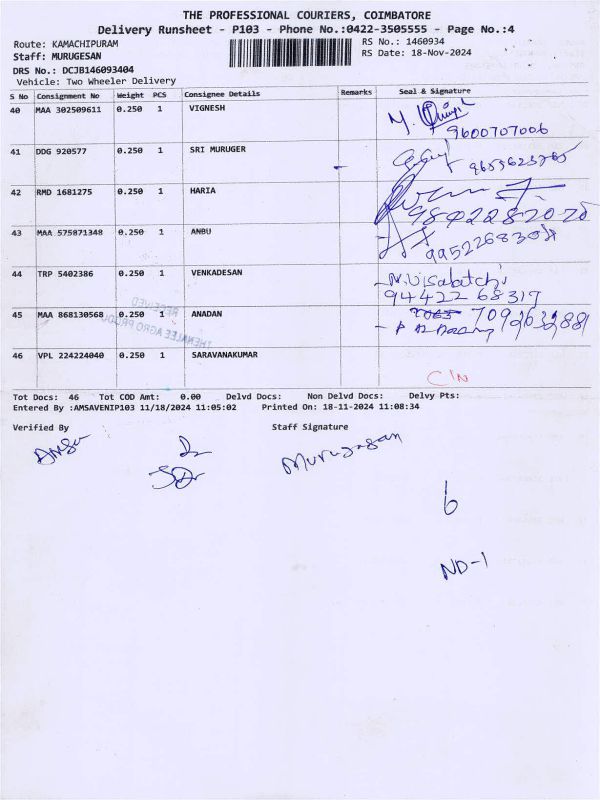 THE PROFESSIONAL COURIERS, COIMBATORE
Delivery Runsheet - P103 - Phone No.:0422-3505555 - Page No.:4
Route: KAMACHIPURAM
RS No.: 1460934
Staff: MURUGESAN
RS Date: 18-Nov-2024
DRS No.: DCJB146093404
Vehicle: Two Wheeler Delivery
S No Consignment No Weight PCS Consignee Details Remarks Seal & Signature
40 MAA 302509611 0.250 1 VIGNESH
9600707006
41 DDG 920577 0.250 1 SRI MURUGER
42 RMD 1681275 0.250 1 HARIA
43 MAA 575871348 0.250 1 ANBU
44 TRP 5402386 0.250 1 VENKADESAN
94422 68317
45 MAA 868130568 0.250 1 ANADAN
7092632881
RECEIVED
THENALEE AGRO PRODU
46 VPL 224224040 0.250 1 SARAVANAKUMAR
C/N
Tot Docs: 46 Tot COD Amt: 0.00 Delvd Docs: Non Delvd Docs: Delvy Pts:
Entered By :AMSAVENIP103 11/18/2024 11:05:02 Printed On: 18-11-2024 11:08:34
Verified By Staff Signature
Amsu
Murugasan
6
ND-1